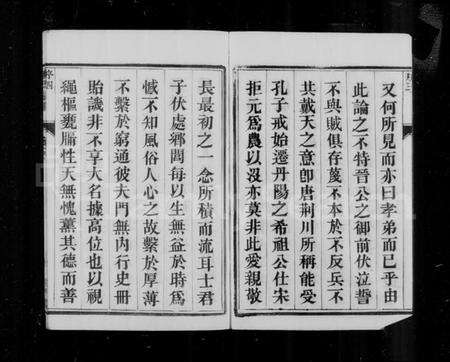 序三
又何所見而亦曰孝弟而已乎由
此論之不特晉公之御前伏泣誓
不與賊俱存蔑不本於不反兵不
共戴天之意卽唐荊川所稱能受
孔子戒始遷丹陽之希祖公仕宋
拒元爲農以沒亦莫非此愛親敬
長最初之一念所積而流耳士君
子伏處鄉閭每以生無益於時爲
憾不知風俗人心之故繫於厚薄
不繫於窮通彼大門無內行史冊
貽譏非不享大名據高位也以視
繩樞甕牖性天無愧薰其德而善
序四